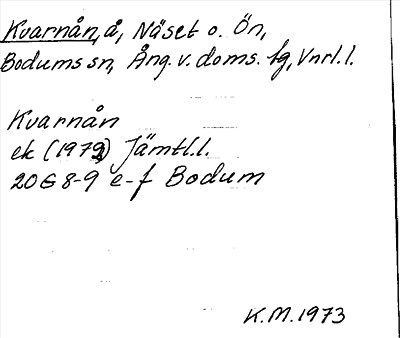 Kvarnån, å, Näset o. Ön,
Bodums sn, Ång. v. doms. fg, Vnrl. l.
Kvarnån
ek (1973) Jämtl. l.
20G 8-9 e-f Bodum
K.M. 1973